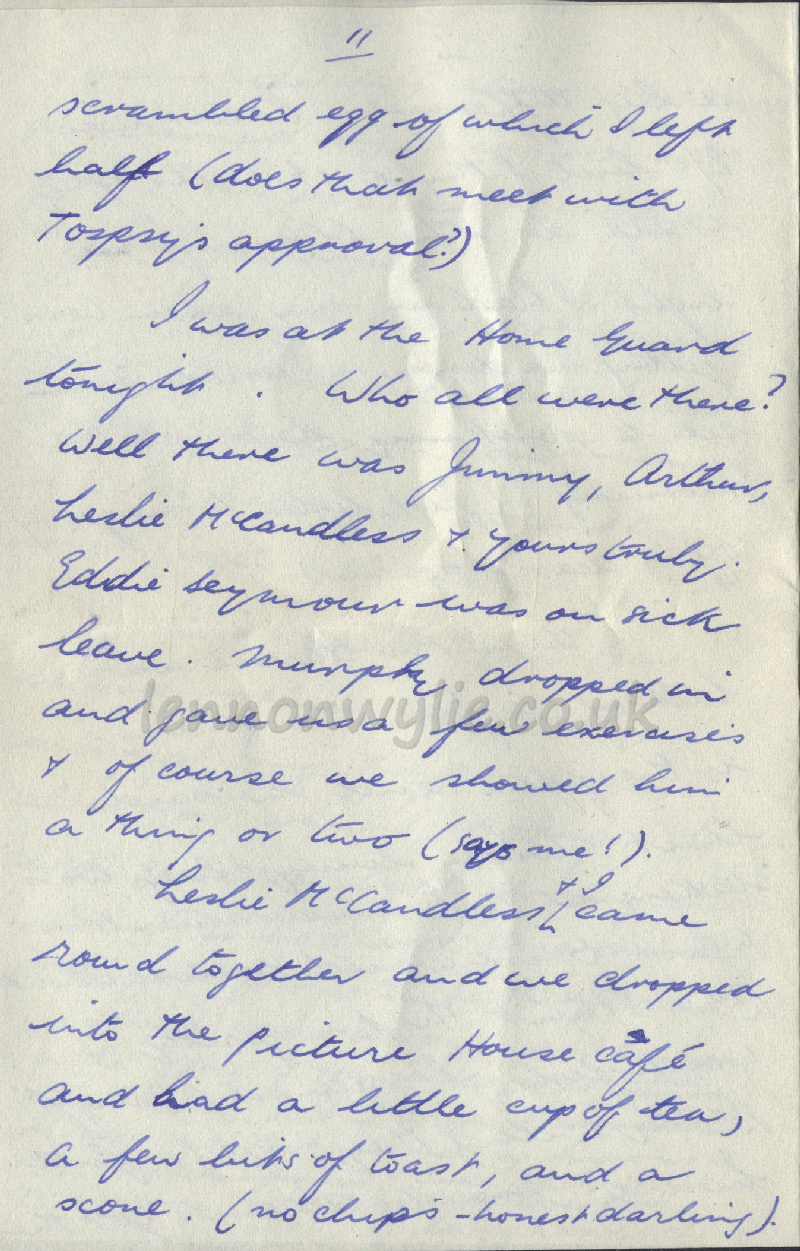 11
scrambled egg of which I left
half (does that meet with
Topsy's approval?)
I was at the Home Guard
tonight. Who all were there?
Well there was Jimmy, Arthur,
Leslie McCandless & yours truly.
Eddie Seymour was on sick
leave. Murphy dropped in
and gave us a few exercises
lennonwylie.co.uk
& of course we showed him
a thing or two (says me!).
Leslie McCandless & I came
round together and we dropped
into the Picture House café
and had a little cup of tea,
a few bits of toast, and a
scone. (no chips - honest darling).